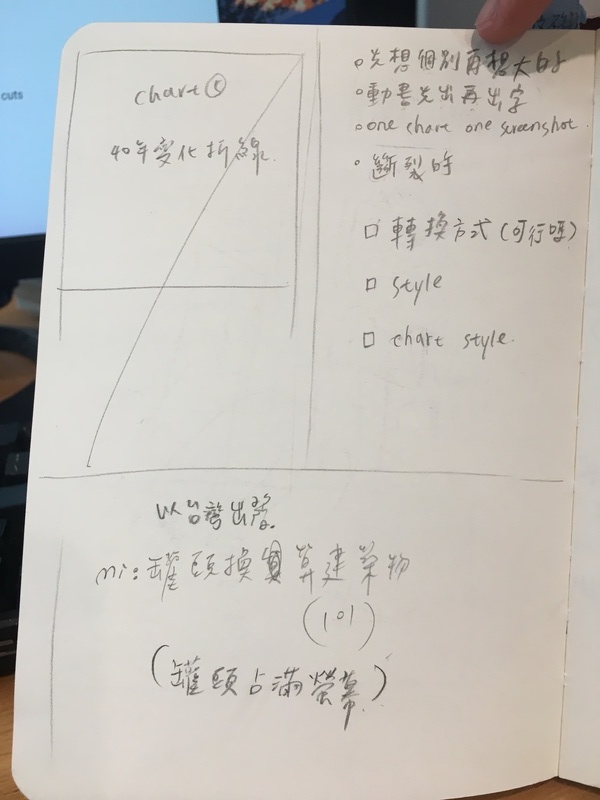 cuts
chart ⑤
40年变化折線
。先想個別再想大的
。動畫先出再出字
。one chart one screenshot
。斷裂的
□ 轉換方式(可行嗎)
□ style
□ chart style.
以台灣出發.
mi:罐頭換算建築物
(101)
(罐頭占滿螢幕)